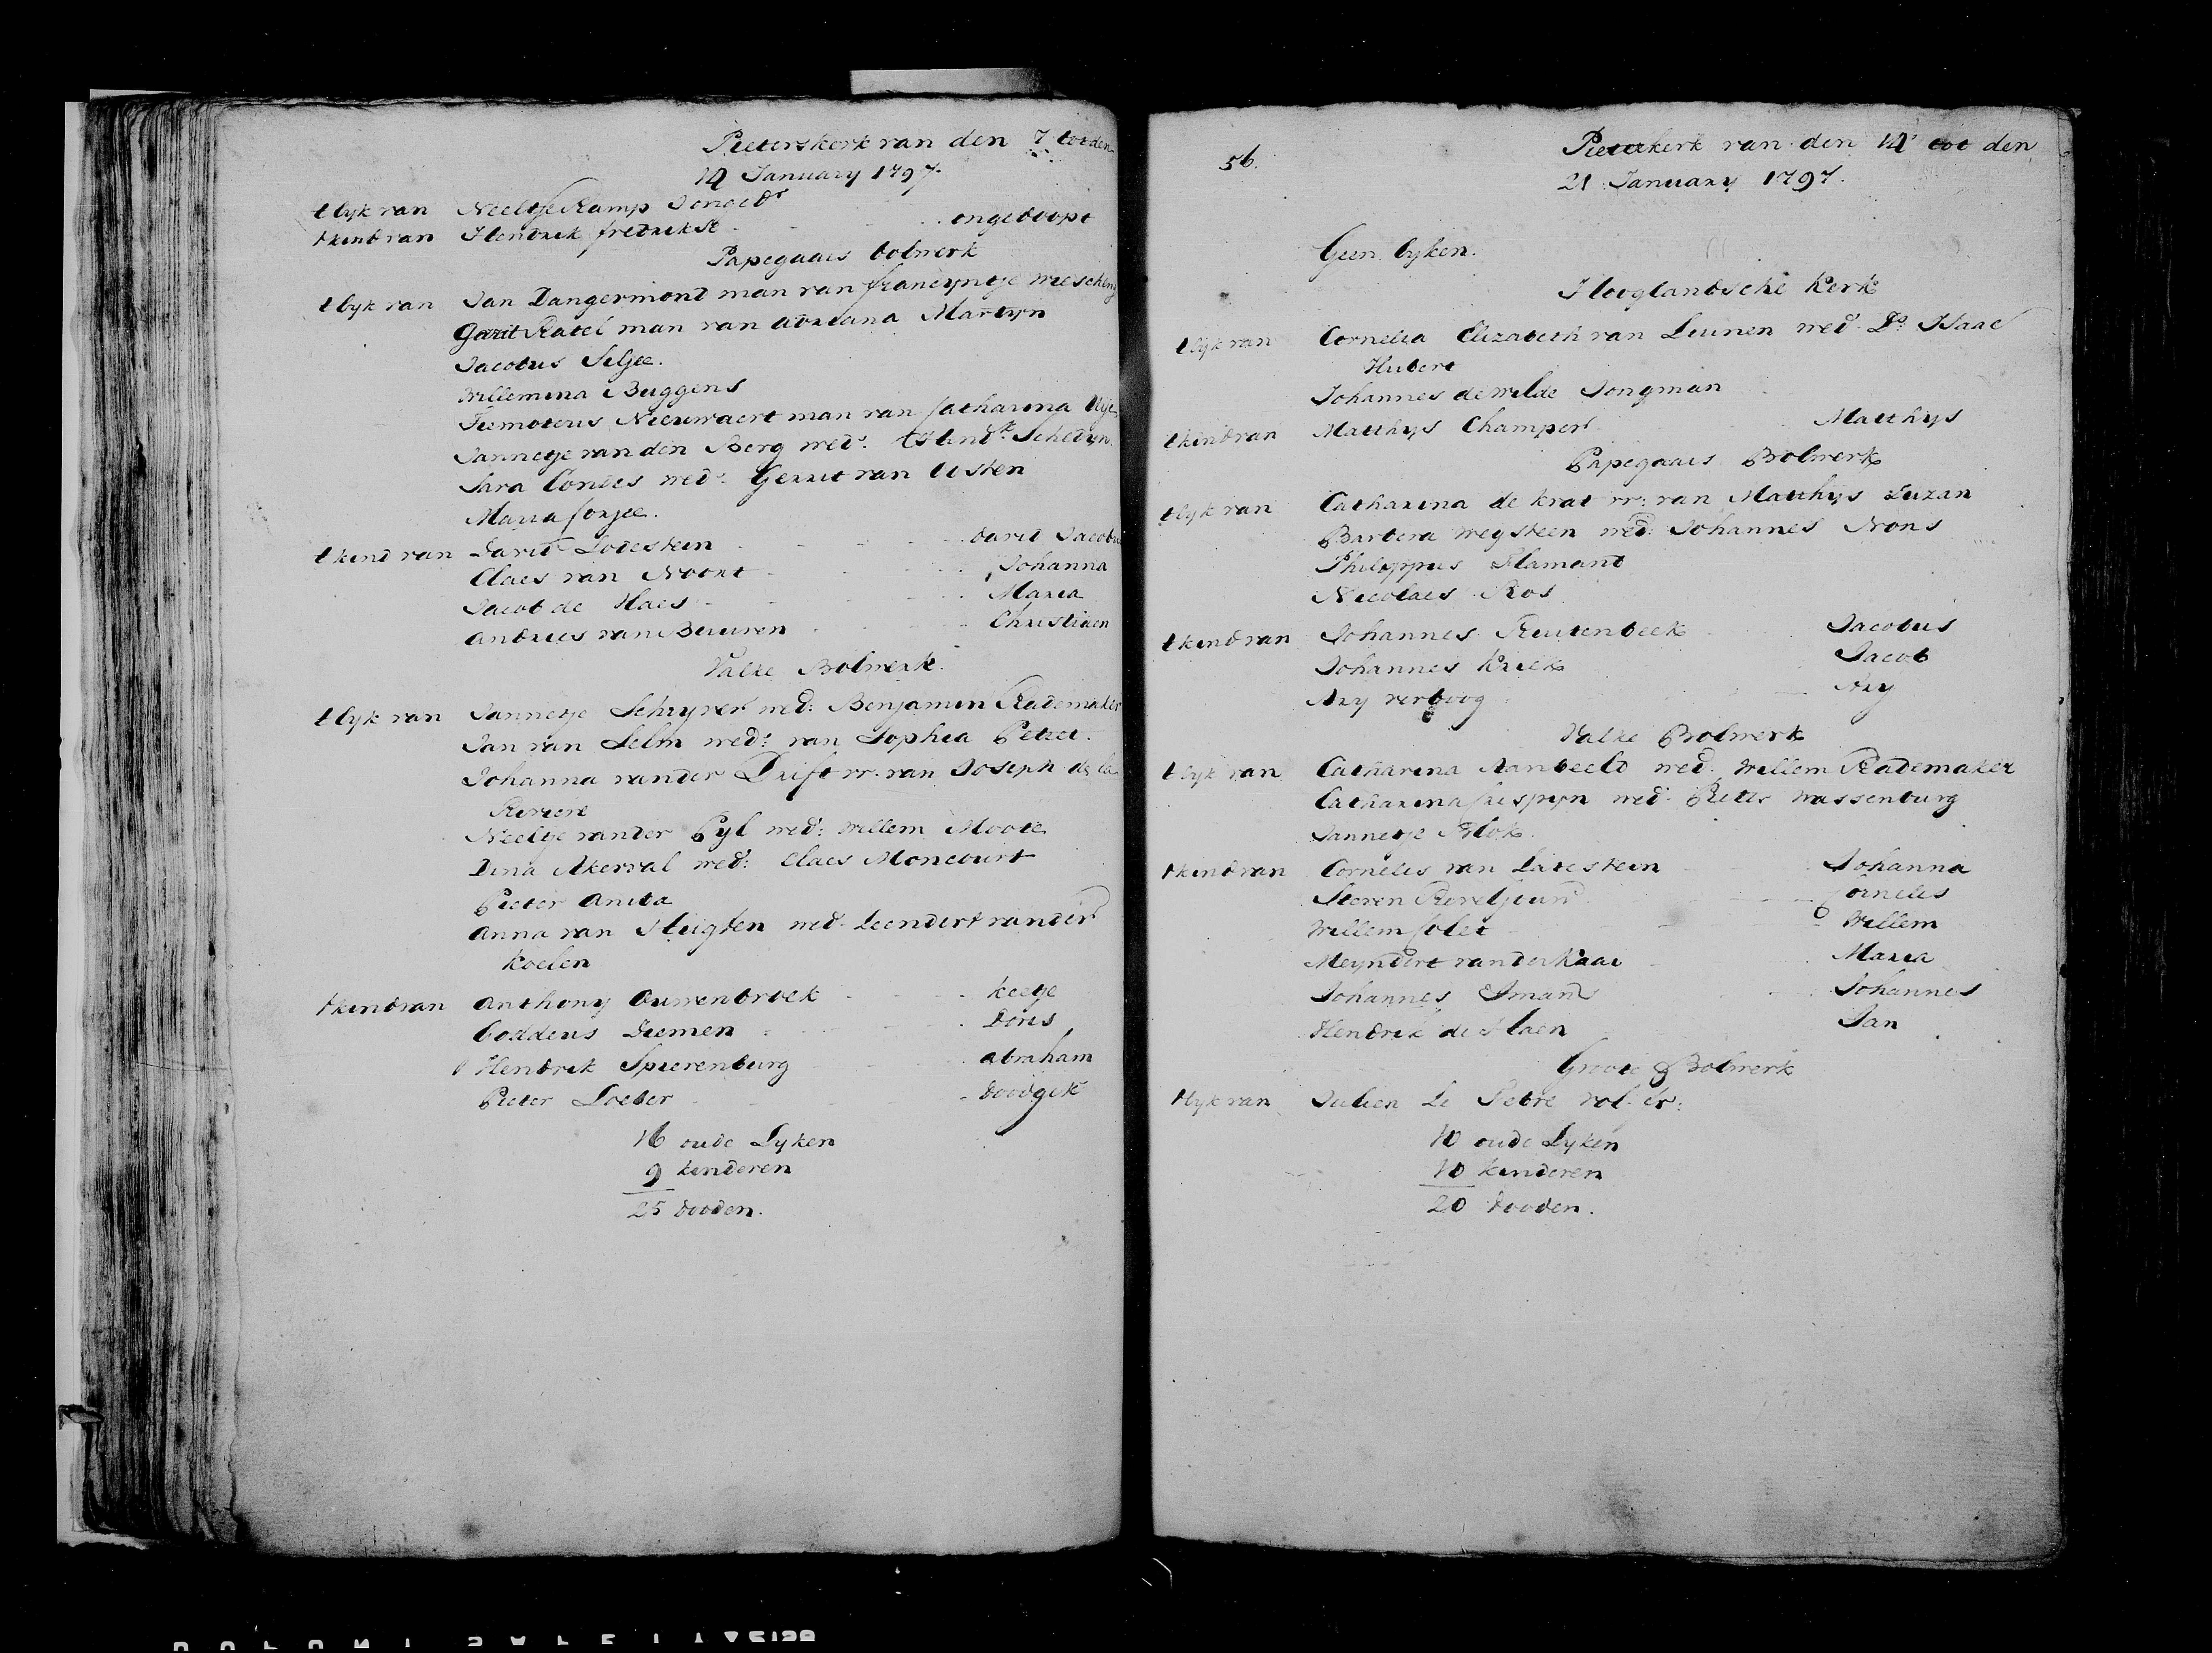 Pieterskerk van den 7 tot den
14 January 1797.
t lyk van Neeltje Kamp Jonged.r
t kind van Hendrik fredrikse ongedoopt
Papegaais bolwerk
t lyk van Jan Dangermond man van francyntje
Gerrit Katel man van adriana Martyn
Jacobus Seljee.
Willemina Buggens
Timoteus Nieuwaert man van Catharina
Jannetje van den Berg wed:
Sara Conies wed: Gerrit van Usten
Maria Corjee.
t kind van David Lodestein david Jacobus
Claes van Noort Johanna
Jacob de Haes Maria
andries van Beuuren Christiaen
Valke Bolwerk.
t lyk van Jannetje Schryver wed: Benjamin Rademaker
Jan van Selm wed: van Sophia Petzet.
Johanna vander Drift vr. van Joseph de la
Riviere
Neeltje vander Pyl wed: willem Moote
Dina Akerval wed: Claes Moncourt
Pieter anita
anna van Hugten wed. Leendert vander
koelen
t kind van anthony Ouwenbroek keetje
Coddeus Diemen Doris
Hendrik Spierenburg abraham
Pieter Loeber doodgek
16 oude Lyken
9 kinderen
25 dooden.
56.
Pieterkerk van den 14 tot den
21 January 1797.
Geen lyken.
Hooglandsche Kerk
t lyk van Cornelia Elizabeth van Leunen wed. Ds. Isaac
Hubert
Johannes de wilde Jongman
t kind van Matthys Champert Matthys
Papegaais Bolwerk
t lyk van Catharina de krat vr: van Matthys Luzan
Barbera wegsteen wed: Johannes Nons
Philippus Flamand
Nicolaes Ros
t kind van Johannes Ruitenbeek Jacobus
Johannes Kriek Jacob
Ary verboog Ary
Valke Bolwerk
t lyk van Catharina Aanbeeld wed. Willem Rademaker
Catharina Crispyn wed. Pieter Wassenburg
Jannetje Blok.
t kind van Cornelis van Latestein Johanna
Steven Cornelis
Willem Colet Willem
Meyndert vander Kaai Maria
Johannes Smand Johannes
Hendrik de Haen Jan
Groote Bolwerk
t lyk van Julien Le Febre
10 oude Lyken
10 kinderen
20 dooden.